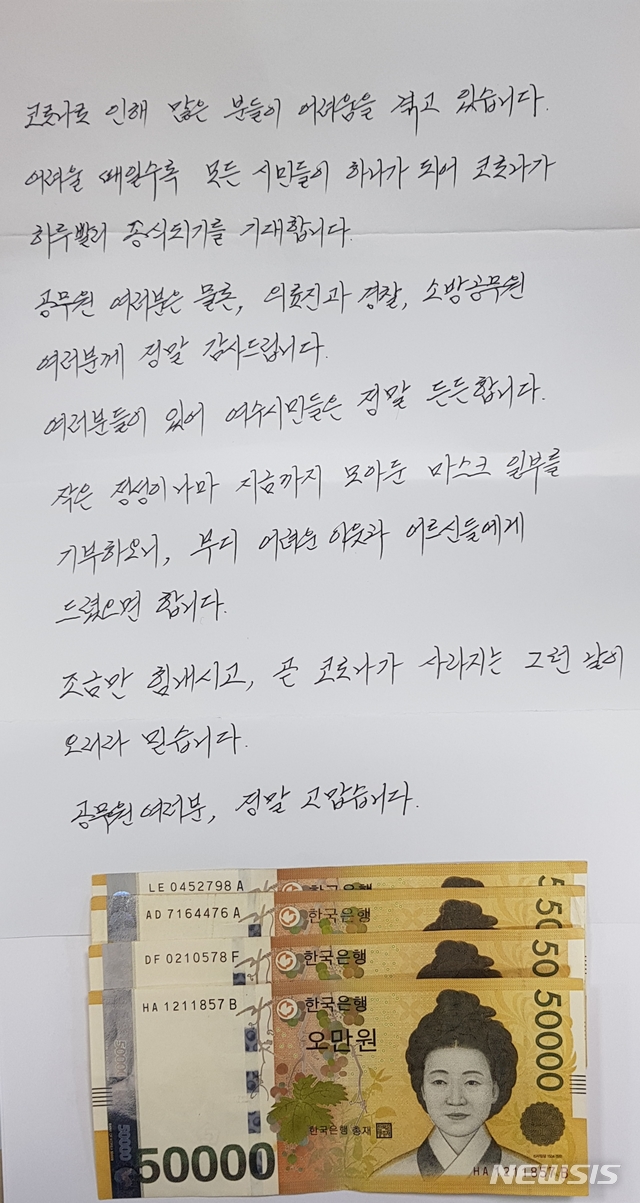 코로나로 인해 많은 분들이 어려움을 겪고 있습니다.
어려울 때일수록 모든 시민들이 하나가 되어 코로나가
하루빨리 종식되기를 기대합니다.
공무원 여러분은 물론, 의료진과 경찰, 소방공무원
여러분께 정말 감사드립니다.
여러분들이 있어 여수시민들은 정말 든든합니다.
작은 정성이나마 지금까지 모아둔 마스크 일부를
기부하오니, 부디 어려운 이웃과 어르신들에게
드렸으면 합니다.
조금만 힘내시고, 곧 코로나가 사라지는 그런 날이
오리라 믿습니다.
공무원여러분, 정말 고맙습니다.
LE 0452798 A 한국은행 50
AD 7164476 A 한국은행 50
DF 0210578 F 한국은행 50
HA 1211857 B 한국은행 50000
오만원
한국은행 총재
50000
50000
50000
HA 1211857 B
NEWSIS